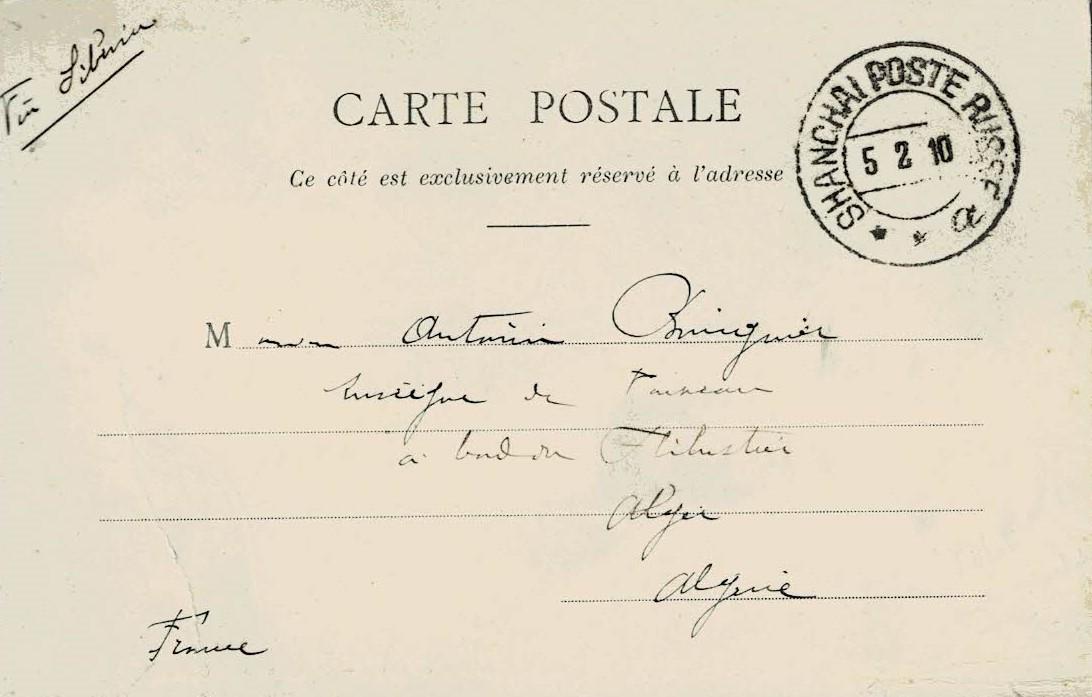 Via Sibérie
CARTE POSTALE
Ce côté est exclusivement réservé à l'adresse
SHANGHAI POSTE RUSSE
5 2 10
a
M Antonin
Enseigne de Vaisseau
à bord du Flibustier
Alger
Algérie
France